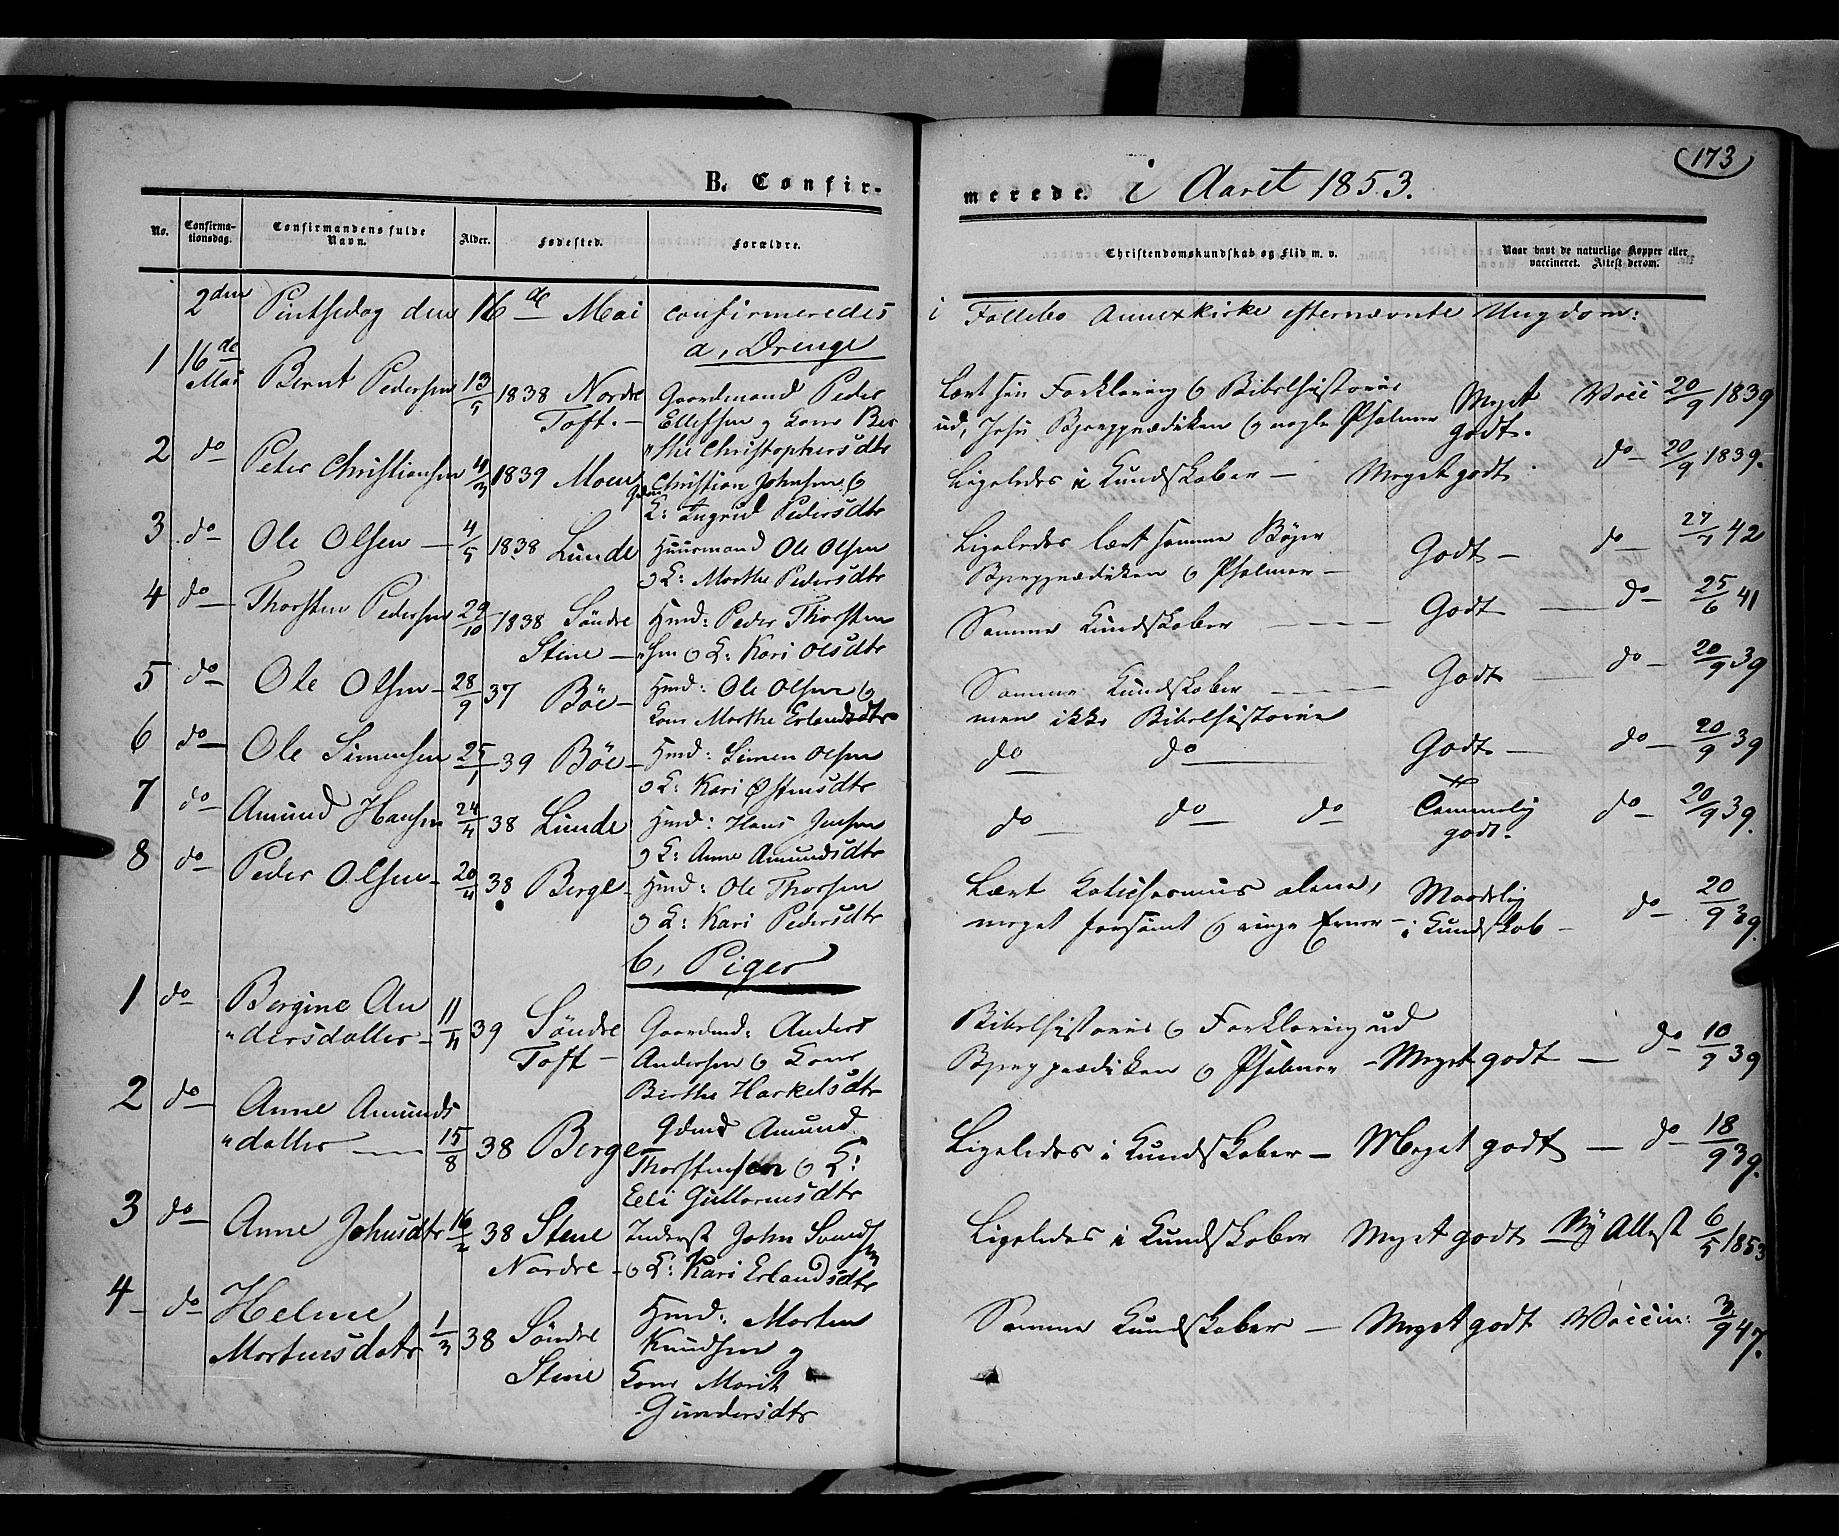 173
B. Confir-
merede. i Aaret 1853.
No.
Confirma-
tionsdag.
Confirmandens fulde
Navn.
Alder.
Fødested.
Forældre.
Christendomskundskab og Flid m. v.
Naar havt de naturlige Kopper eller
vaccineret. Attest derom.
2den Pintsedag den 16de Mai confirmeredes i Follebo Annexkirke efternævnte Ungdom:
a, Drenge
1 16de Mai Bernt Pedersen 13/5 1838 Nordre Toft. Gaardmand Peder
Ellefsen og Kone Ber
"the Christophersdtr
Lært sin Forklaring & Bibelhistorie
ud, Jesu Bjergprædiken & nogle Psalmer Meget godt. Vacc 20/9 1839
2 do Peter Christiansen 4/3 1839 Moen Gdm Christian Johnsen &
K: Ingrid Pedersdtr
Ligeledes i Kundskaber — Meget godt do 20/9 1839.
3 do Ole Olsen 4/5 1838 Lunde Huusmand Ole Olsen
& K: Marthe Pedersdtr
Ligeledes lært samme Bøger
Bjergprædiken & Psalmer — Godt do 27/7 42
4 do Thorsten Pedersen 29/10 1838 Søndre Stine Hmd: Peder Thorsten
"sen & K: Kari Olsdtr
Samme Kundskaber Godt do 25/6 41
5 do Ole Olsen 28/9 37 Böe Hmd: Ole Olsen &
Kone Marthe Erlandsdtr
Samme Kundskaber
men ikke Bibelhistorie Godt do 20/9 39
6 do Ole Simensen 25/1 39 Böe Hmd: Simen Olsen
& K: Kari Østensdtr
do do Godt do 20/9 39
7 do Amund Hansen 24/4 38 Lunde Hmd: Hans Jensen
& K: Anne Amundsdtr
do do do Temmelig godt. do 20/9 39.
8 do Peder Olsen 20/4 38 Berge Hmd: Ole Thorsen
& K: Kari Pedersdtr
Lært Katechesmus alene,
meget forsømt & ringe Evner — Maadelig i Kundskab do 20/9 39.
b, Piger
1 do Bergine An
"dersdatter 11/4 39 Søndre Toft Gaardmd: Anders
Andersen & Kone
Birthe Harkelsdtr
Bibelhistorie & Forklaring ud
Bjergprædiken & Psalmer — Meget godt do 10/9 39
2 do Anne Amunds
"datter 15/8 38 Berge Gdmd Amund
Thorstensen & K:
Eli Guttormsdtr
Ligeledes i Kundskaber — Meget godt do 18/9 39.
3 do Anne Johnsdtr 38 Stine Nordre Inderst John Svendsen
& K: Kari Erlandsdtr
Ligeledes i Kundskaber Meget godt Ny Attest 6/5 1853
4 do Helene
Mortensdatr 1/3 38 Søndre Stine Hmd: Morten
Knudsen &
Kone Marit
Gundersdtr
Samme Kundskaber — Meget godt Vaccin: 3/9 47.